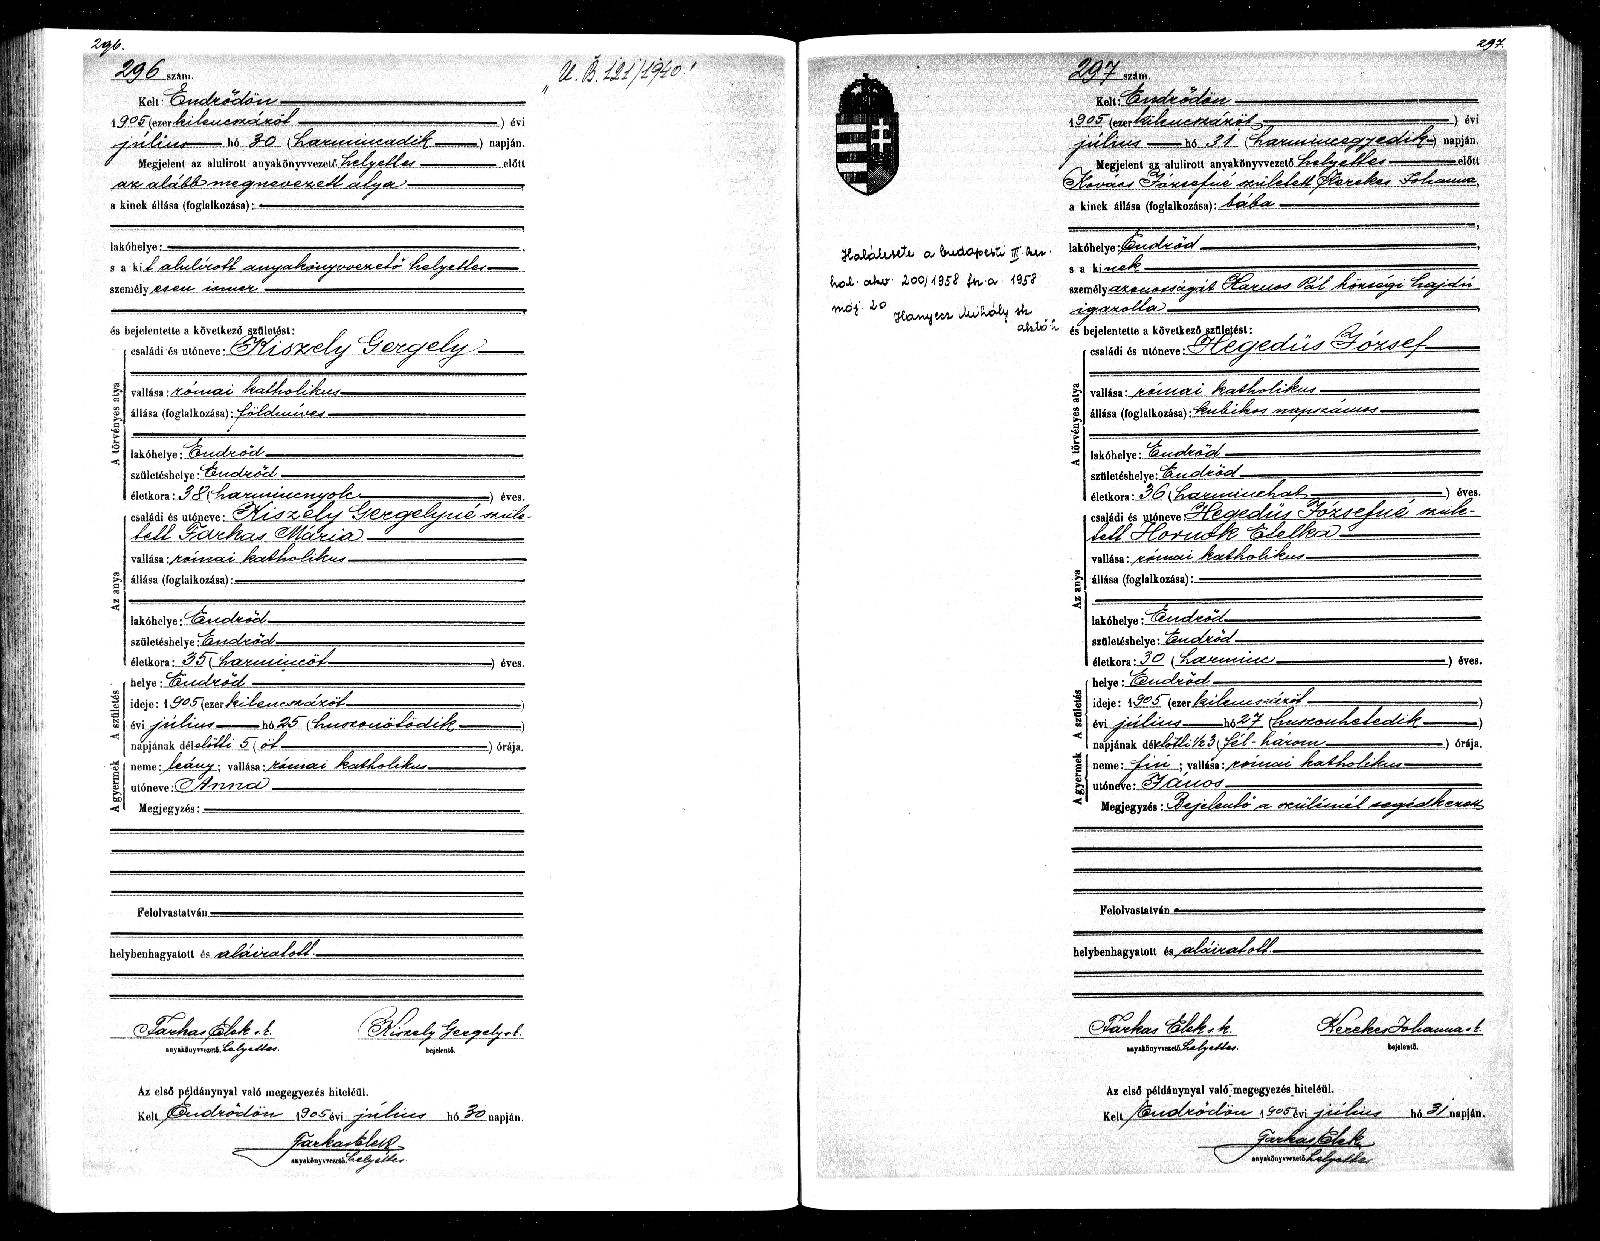 296.
296 szám.
„U. B. 121/1940.”
Kelt: Endrődön
1905 (ezer kilencszázöt) évi
július hó 30 (harmincadik) napján.
Megjelent az alulirott anyakönyvvezető helyettes előtt
az alább megnevezett atya
a kinek állása (foglalkozása):
lakóhelye:
s a kit alulírott anyakönyvvezető helyettes
személyesen ismer
és bejelentette a következő születést:
A törvényes atya
családi és utóneve: Kiszely Gergely
vallása: római katholikus
állása (foglalkozása): földmíves
lakóhelye: Endrőd
születéshelye: Endrőd
életkora: 38 (harmincnyolc) éves.
Az anya
családi és utóneve: Kiszely Gergelyné szüle-
tett Farkas Mária
vallása: római katholikus
állása (foglalkozása):
lakóhelye: Endrőd
születéshelye: Endrőd
életkora: 35 (harmincöt) éves.
A születés
helye: Endrőd
ideje: 1905 (ezer kilencszázöt)
évi július hó 25 (huszonötödik)
napjának délelőtti 5 (öt) órája.
A gyermek
neme: leány; vallása: római katholikus
utóneve: Anna
Megjegyzés:
Felolvastatván
helybenhagyatott és aláíratott.
Farkas Elek s.k. Kiszely Gergely s.k.
anyakönyvvezető helyettes. bejelentő.
Az első példánynyal való megegyezés hiteléül.
Kelt Endrődön 1905 évi július hó 30 napján.
Farkas Elek
anyakönyvvezető helyettes
297.
297 szám.
Kelt: Endrődön
1905 (ezer kilencszázöt) évi
július hó 31 (harmincegyedik) napján.
Megjelent az alulirott anyakönyvvezető helyettes előtt
Kovács Józsefné született Kerekes Johanna,
a kinek állása (foglalkozása): bába
lakóhelye: Endrőd
s a kinek
személyazonosságát Harnos Pál községi hajdú
igazolta
Halálesete a budapesti III. ker.
hal. akv. 200/1958 fsz. a 1958
máj. 20 Hanyecz Mihály sk
és bejelentette a következő születést:
A törvényes atya
családi és utóneve: Hegedüs József
vallása: római katholikus
állása (foglalkozása): kubikos napszámos
lakóhelye: Endrőd
születéshelye: Endrőd
életkora: 36 (harminchat) éves.
Az anya
családi és utóneve: Hegedüs Józsefné szüle-
tett Hornok Etelka
vallása: római katholikus
állása (foglalkozása):
lakóhelye: Endrőd
születéshelye: Endrőd
életkora: 30 (harminc) éves.
A születés
helye: Endrőd
ideje: 1905 (ezer kilencszázöt)
évi július hó 27 (huszonhetedik)
napjának délelőtti ½3 (fél-három) órája.
A gyermek
neme: fiu; vallása: római katholikus
utóneve: János
Megjegyzés: Bejelentő a szülésnél segédkezett
Felolvastatván
helybenhagyatott és aláíratott.
Farkas Elek s.k. Kerekes Johanna s.k.
anyakönyvvezető helyettes. bejelentő.
Az első példánynyal való megegyezés hiteléül.
Kelt Endrődön 1905 évi július hó 31 napján.
Farkas Elek
anyakönyvvezető helyettes